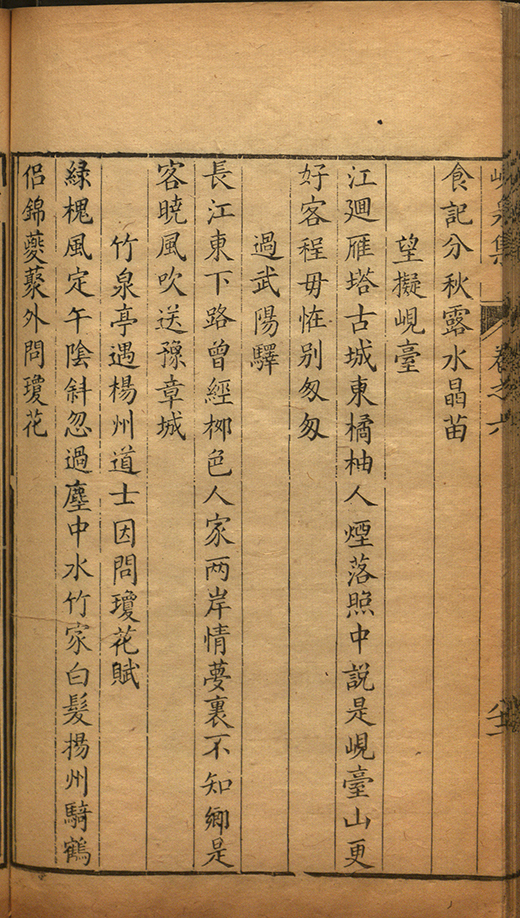 峴泉集 卷之六
食記分秋露水晶苗
望擬峴臺
江迴雁塔古城東橘柚人煙落照中説是峴臺山更
好客程毋恠别匆匆
過武陽驛
長江東下路曾經栁色人家两岸情夢裏不知鄉是
客曉風吹送豫章城
竹泉亭遇楊州道士因問瓊花賦
緑槐風定午陰斜忽過塵中水竹家白髮揚州騎鶴
侣錦薆蘂外問瓊花